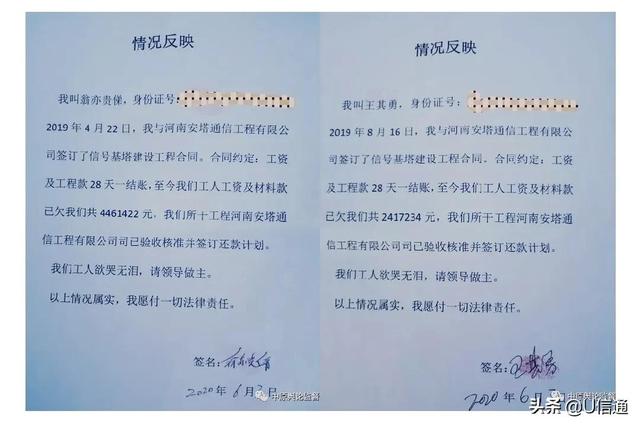 情况反映
我叫翁亦贵俤，身份证号：
2019 年 4 月 22 日，我与河南安塔通信工程有限公
司签订了信号基塔建设工程合同。合同约定：工资
及工程款 28 天一结账，至今我们工人工资及材料款
已欠我们共 4461422 元，我们所干工程河南安塔通
信工程有限公司司已验收核准并签订还款计划。
我们工人欲哭无泪，请领导做主。
以上情况属实，我愿付一切法律责任。
签名：
2020 年 6 月
中原舆论监督
情况反映
我叫王其勇，身份证号：
2019 年 8 月 16 日，我与河南安塔通信工程有限公
司签订了信号基塔建设工程合同。合同约定：工资
及工程款 28 天一结账，至今我们工人工资及材料款
已欠我们共 2417234 元，我们所干工程河南安塔通
信工程有限公司司已验收核准并签订还款计划。
我们工人欲哭无泪，请领导做主。
以上情况属实，我愿付一切法律责任。
签名：
2020 年 6
中原舆论监督
头条 @U信通